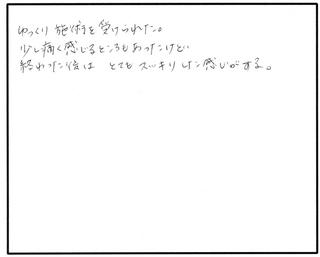 ゆっくり施術を受けられた。
少し痛く感じるところもあったけど
終わった後は とても スッキリした感じがする。